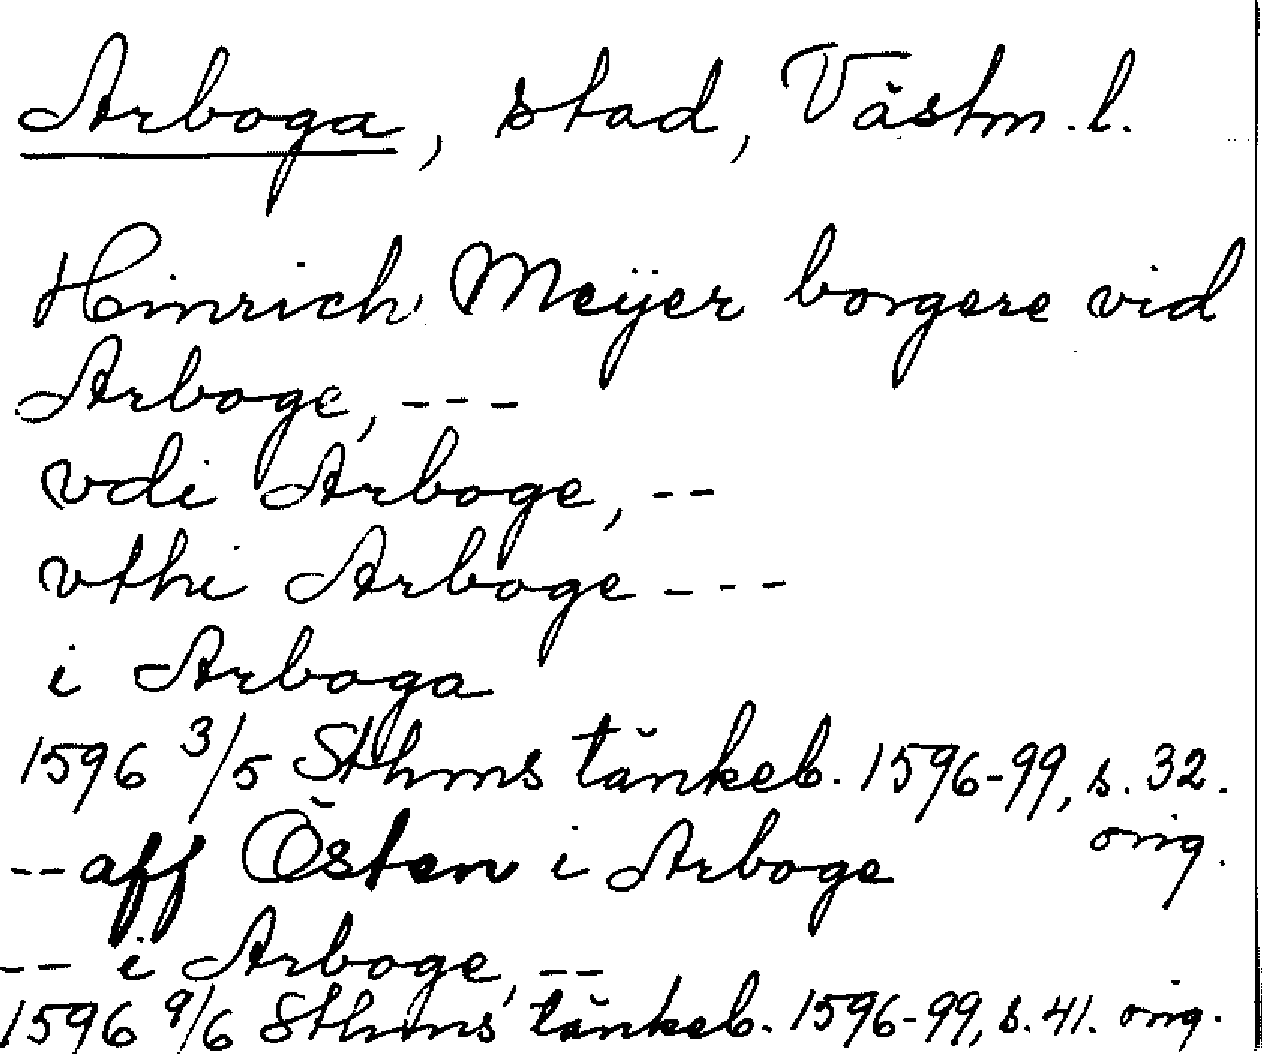 Arboga, stad, Västm. l.
Hinrich Meÿer borgere vid
Arboge, ---
vdi Arboge, --
vthi Arboge ---
i Arboga
1596 3/5 Sthms tänkeb. 1596-99, s. 32.
orig.
--aff Östen i Arboge
-- i Arboge, --
1596 9/6 Sthms tänkeb. 1596-99, s. 41. orig.